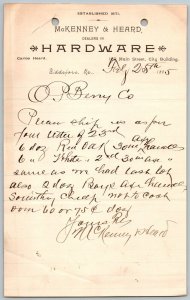 ESTABLISHED 1871.
McKENNEY & HEARD,
DEALERS IN
HARDWARE
Carlos Heard. Main Street, City Building.
Biddeford, Me. 28th 1905
O P Berry Co
Please ship us as per
your letter of 23rd
6 doz Red Oak 30 in Handles
6 " White " 2nd 30 in "
same as we had last lot
also 2 doz Boys Axe Handles
Something cheap not to cost
over 60 or 75¢ doz
Yours truly
McKenney & Heard